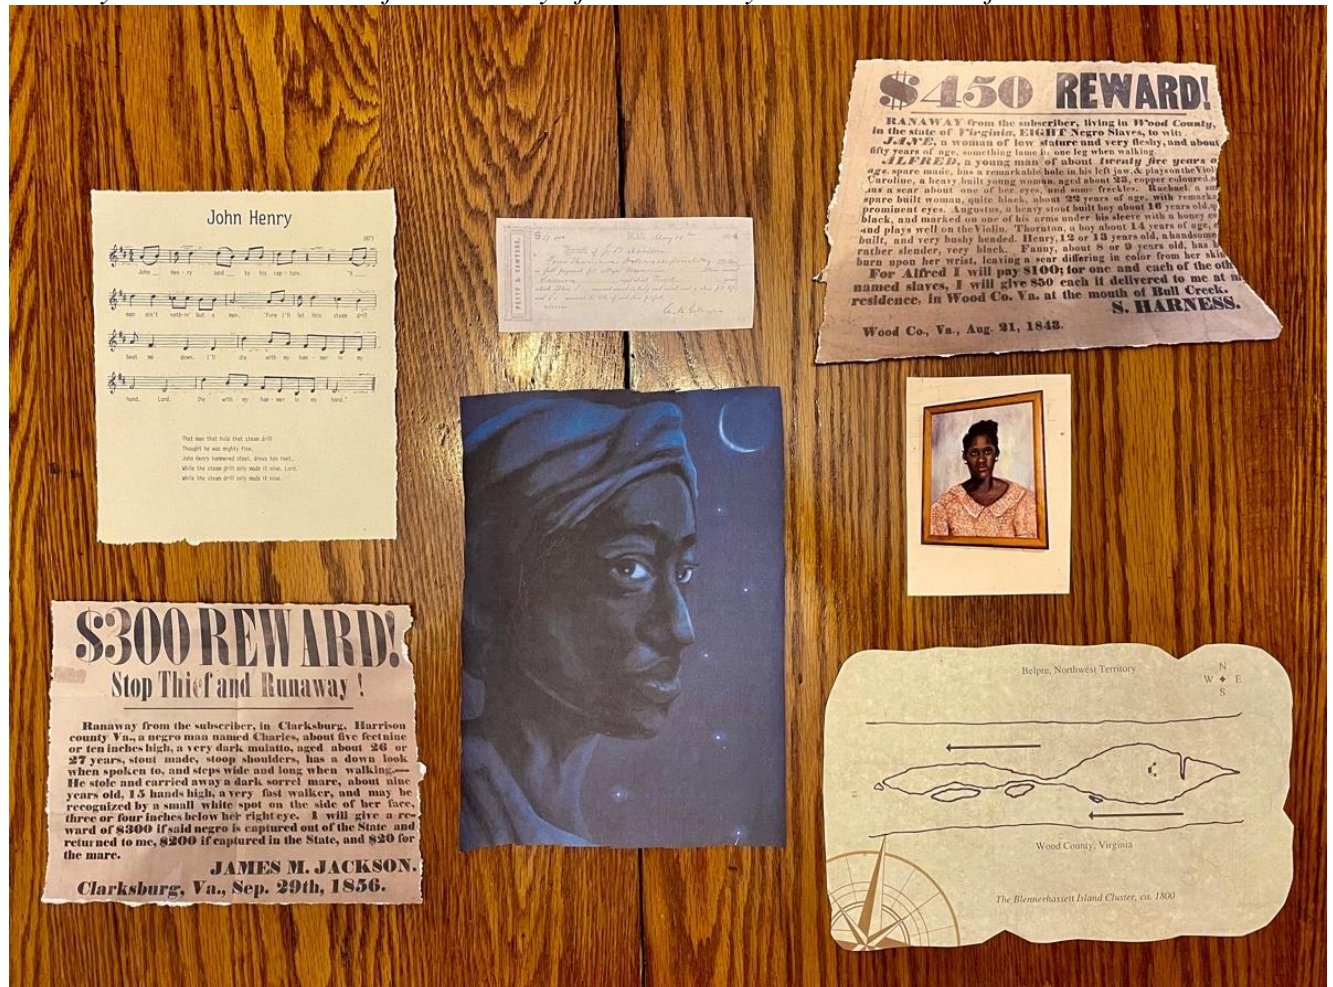 John Henry
John Hen - ry said to his cap - tain, "A
man ain't noth-in' but a man. 'Fore I'll let this steam drill
beat me down, I'll die with my ham - mer in my
hand, Lord. Die with my ham - mer in my hand."
That man that hold that steam drill
Thought he was mighty fine,
John Henry hammered steel, drove ten feet,
While the steam drill only made it nine, Lord,
While the steam drill only made it nine.
$450 REWARD!
RANAWAY from the subscriber, living in Wood County,
in the state of Virginia, EIGHT Negro Slaves, to wit:
JANE, a woman of low stature and very fleshy, and about
fifty years of age, something lame in one leg when walking.
ALFRED, a young man of about twenty five years o
age, spare made, has a remarkable hole in his left jaw, & plays on the Viol
Caroline, a heavy built young woman, aged about 23, copper coloured,
has a scar about one of her eyes, and some freckles. Rachael, a sm
spare built woman, quite black, about 22 years of age, with remarka
prominent eyes. Augustus, a heavy stout built boy about 16 years old,
black, and marked on one of his arms under his sleeve with a
and plays well on the Violin. Thornton, a boy about 14 years of age,
built, and very bushy headed. Henry, 12 or 13 years old, a handsome
rather slender, very black. Fanny, about 8 or 9 years old, has
burn upon her wrist, leaving a scar differing in color from her skin
For Alfred I will pay $100; for one and each of the oth
named slaves, I will give $50 each if delivered to me at m
residence, in Wood Co. Va. at the mouth of Bull Creek.
S. HARNESS.
Wood Co., Va., Aug. 21, 1843.
$300 REWARD!
Stop Thief and Runaway !
Ranaway from the subscriber, in Clarksburg, Harrison
county Va., a negro man named Charles, about five feet nine
or ten inches high, a very dark mulatto, aged about 26 or
27 years, stout made, stoop shoulders, has a down look
when spoken to, and steps wide and long when walking.—
He stole and carried away a dark sorrel mare, about nine
years old, 15 hands high, a very fast walker, and may be
recognized by a small white spot on the side of her face,
three or four inches below her right eye. I will give a re-
ward of $300 if said negro is captured out of the State and
returned to me, $200 if captured in the State, and $20 for
the mare.
JAMES M. JACKSON.
Clarksburg, Va., Sep. 29th, 1856.
Belpre, Northwest Territory
N
W E
S
Wood County, Virginia
The Blennerhassett Island Cluster, ca. 1800